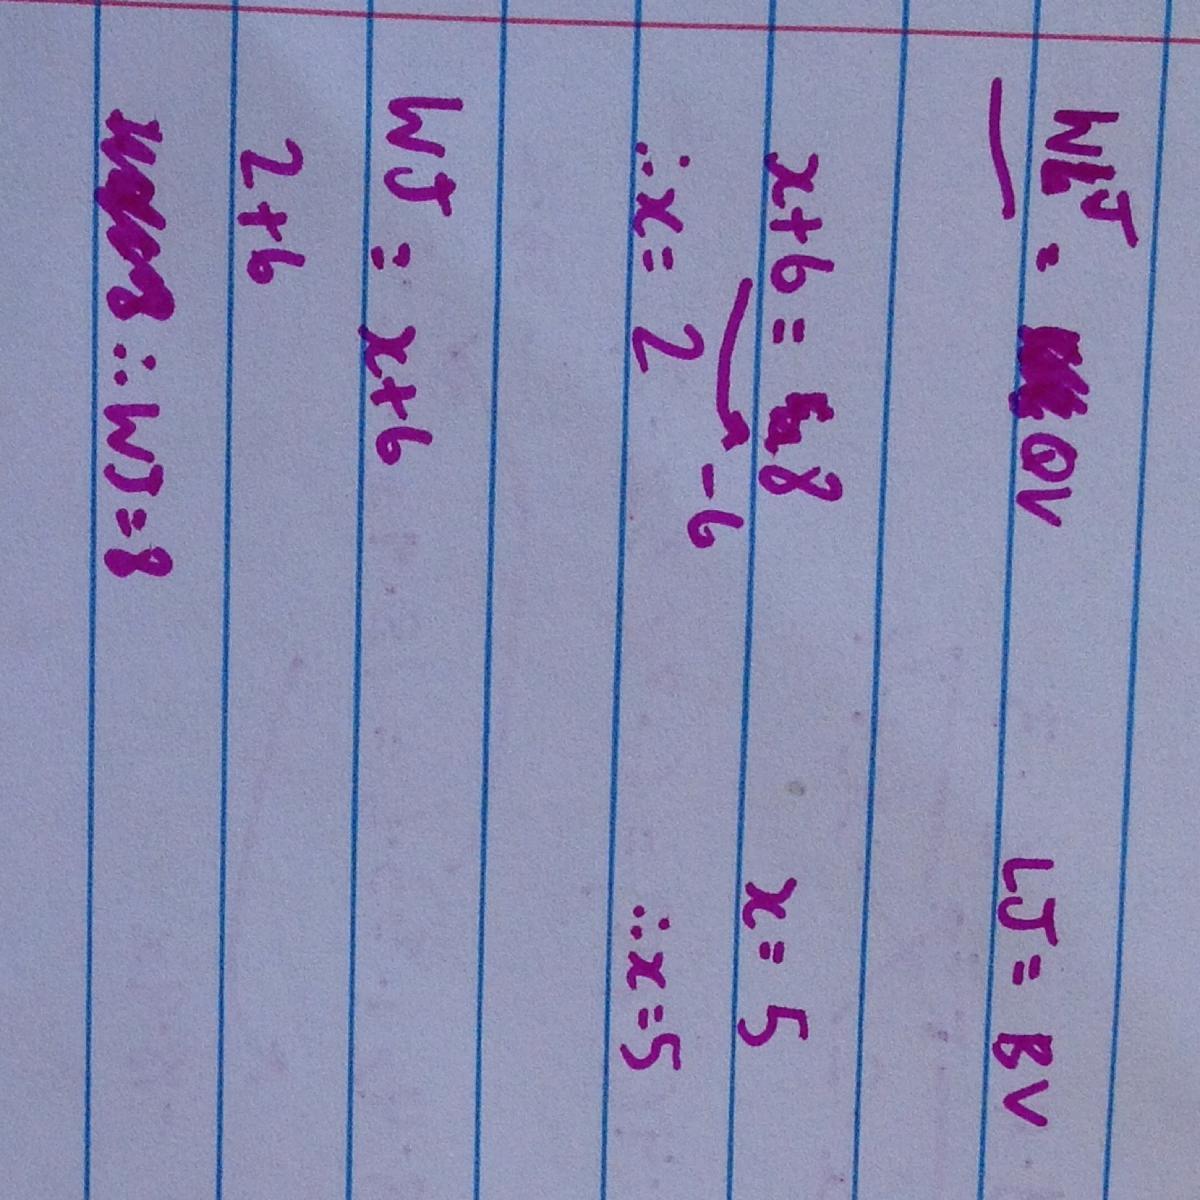 WJ = OV
x+6 = 8
-6
∴x = 2
WJ = x+6
2+6
∴WJ=8
LJ = BV
x = 5
∴x=5